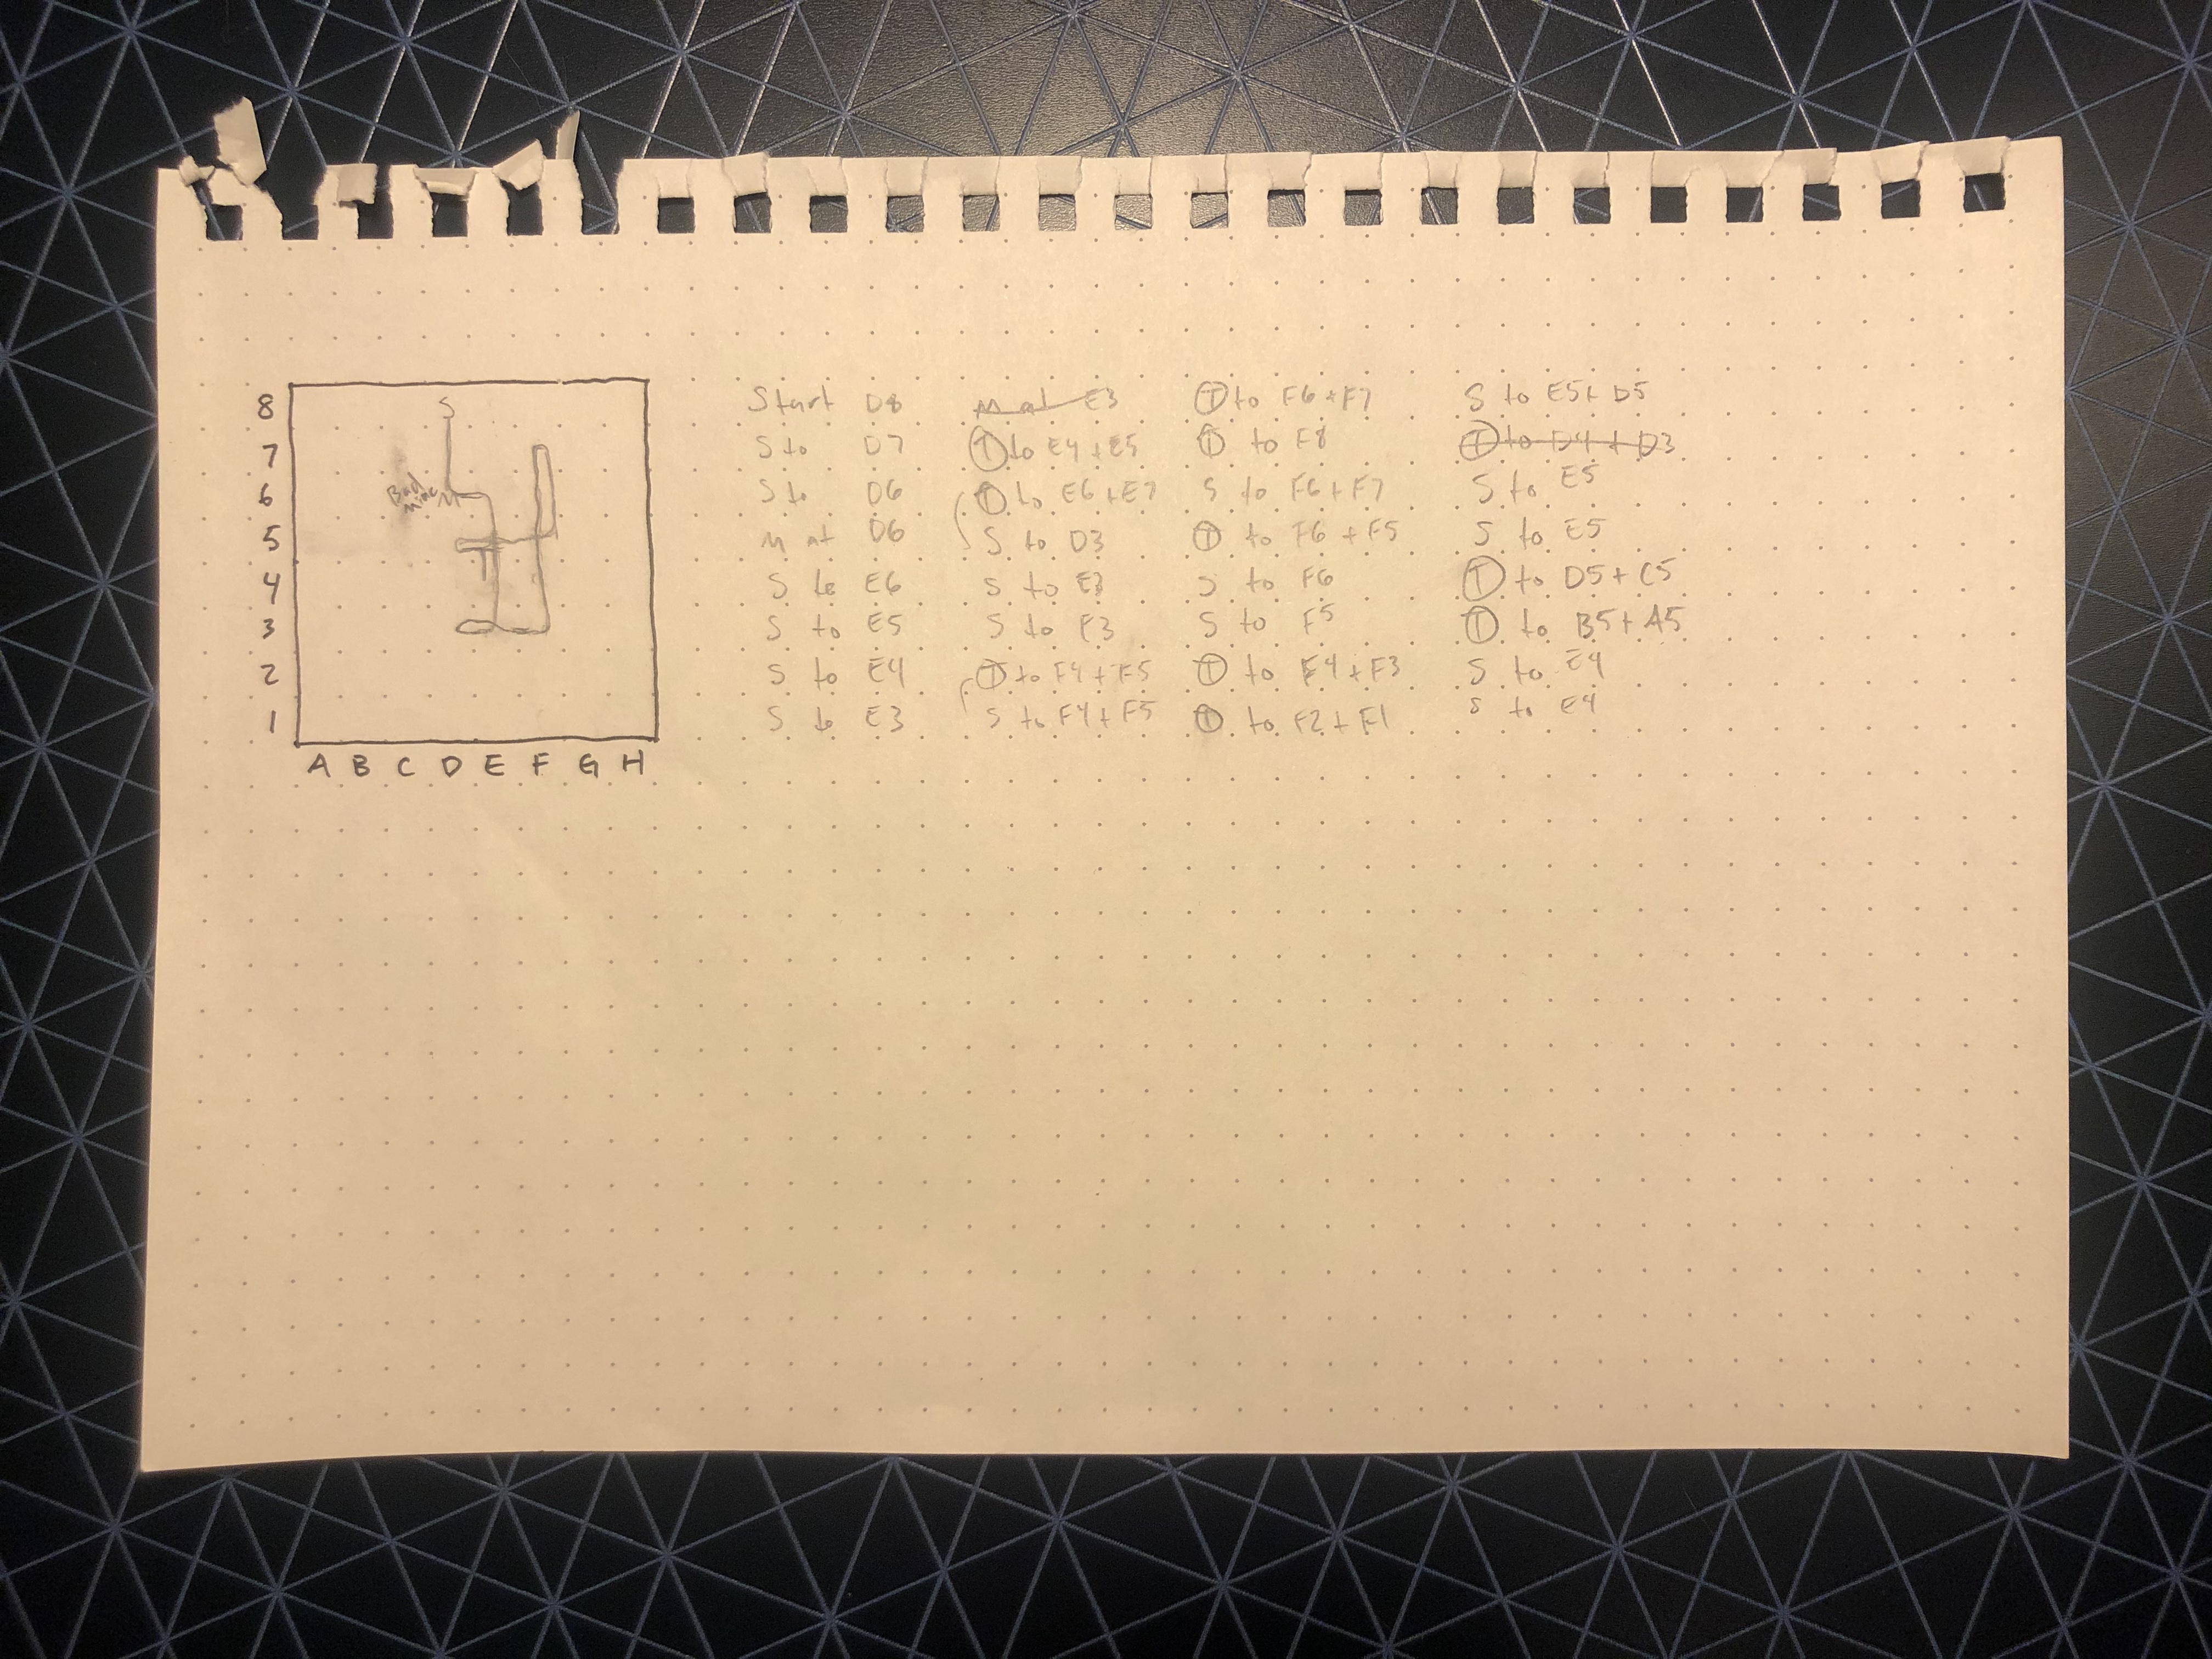 8
7
6
5
4
3
2
1
A B C D E F G H
S
Bad
mine M
T
Start D8
S to D7
S to D6
M at D6
S to E6
S to E5
S to E4
S to E3
M at E3
T to E4 + E5
T to E6 + E7
S to D3
S to E3
S to F3
T to F4 + F5
S to F4 + F5
T to F6 + F7
T to F8
S to F6 + F7
T to F6 + F5
S to F6
S to F5
T to F4 + F3
T to F2 + F1
S to E5 + D5
T to D4 + D3
S to E5
S to E5
T to D5 + C5
T to B5 + A5
S to E4
S to E4